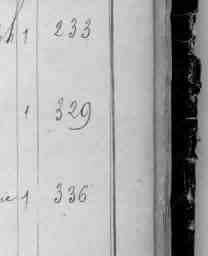 1 233
1 329
1 336